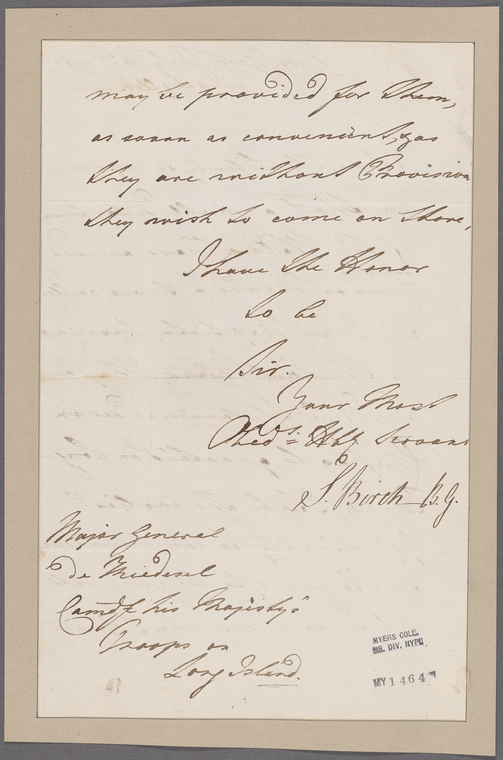 may be provided for them,
as soon as convenient, & as
they are without Provision
they wish to come on Shore,
I have the Honor
to be
Sir.
Your Most
Obedt. Hble Servant
S. Birch B.G.
Major General
de Riedesel
Camdg his Majesty's
Troops on
Long Island.
MYERS COLL.
MS. DIV. NYPL
MY 1464